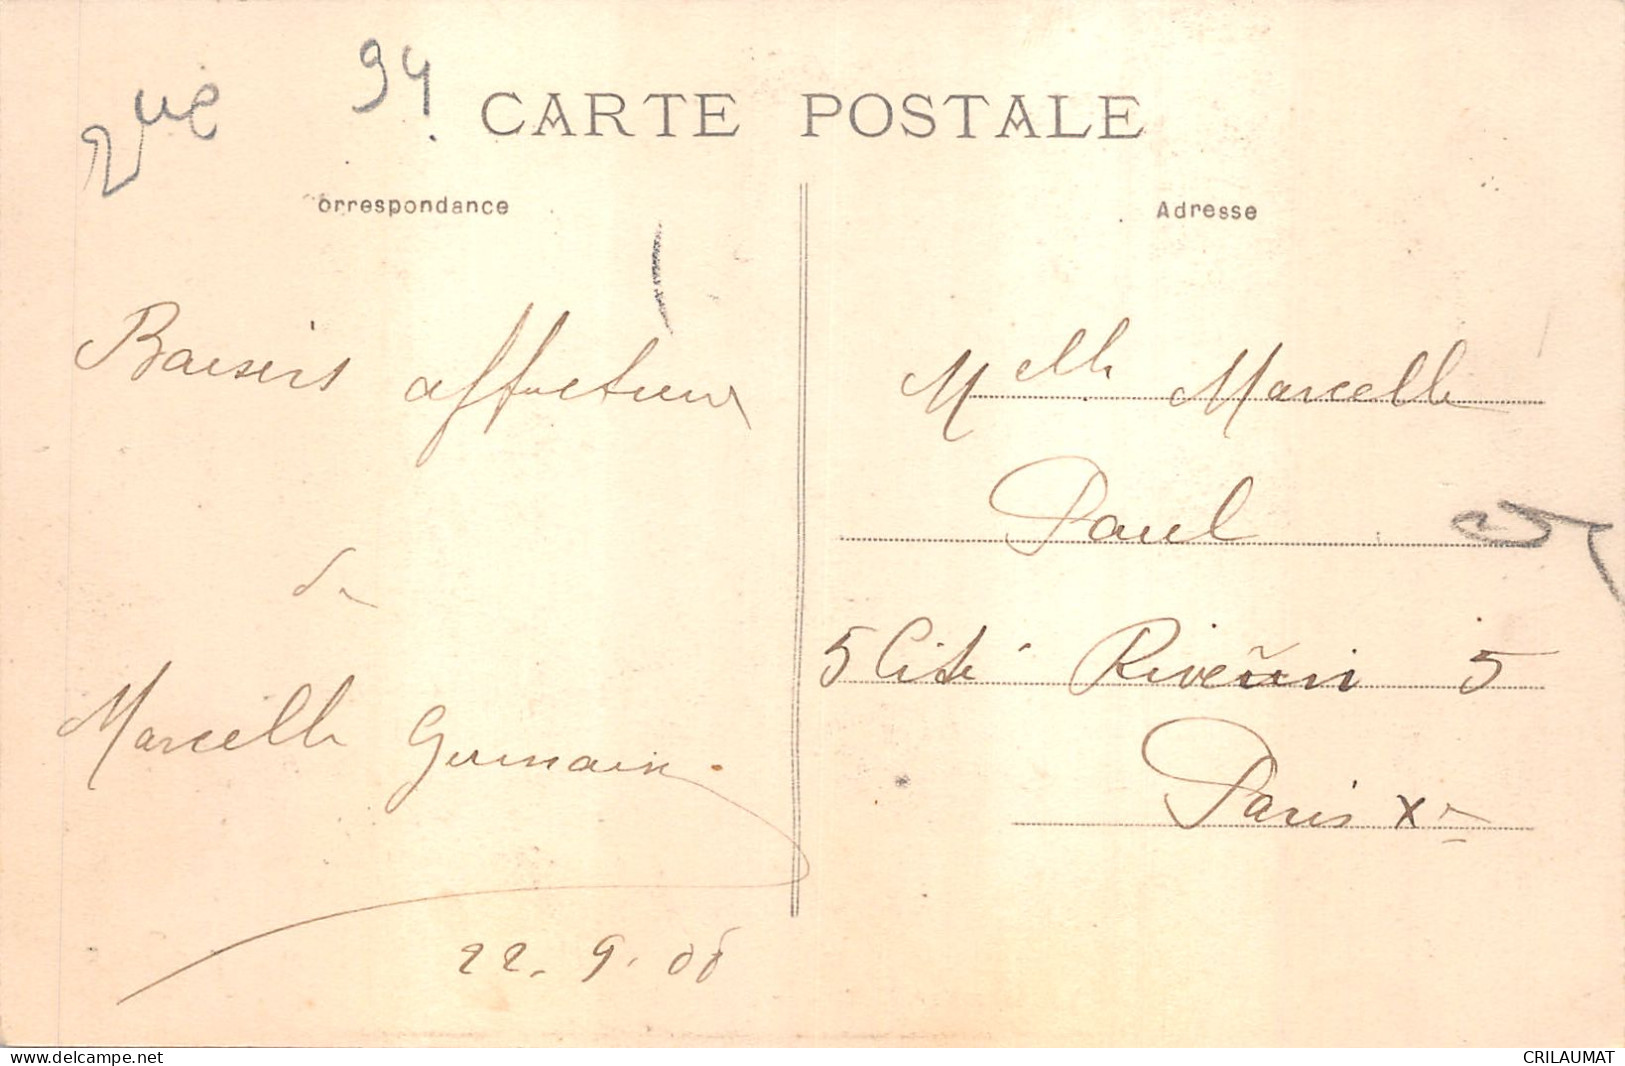 94
CARTE POSTALE
orrespondance
Adresse
Baisers affectueux
de
Marcelle Germain
22. 9. 06
Melle Marcelle
Paul
5 Cité Riverin 5
Paris Xe
www.delcampe.net
CRILAUMAT